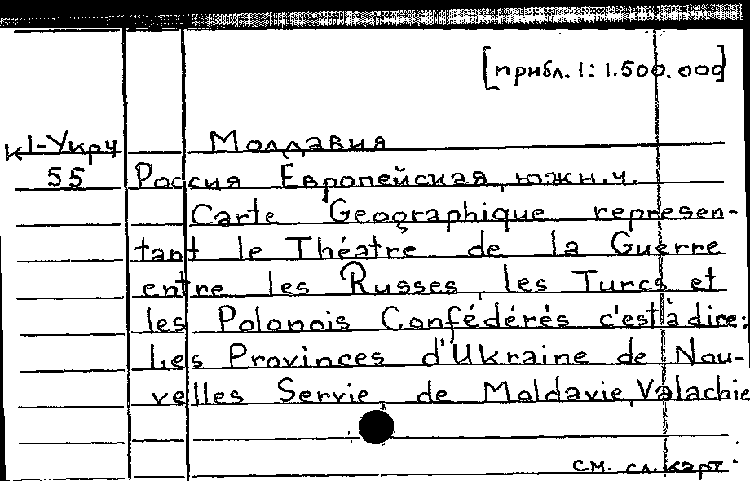 [прибл. 1:1.500.000]
К1-Укр4 Молдавия
55 Россия Европейская, южн.ч.
Carte Geographique represen-
tant le Théatre de la Guerre
entre les Russes, les Turcs et
les Polonois Confédérés c'est à dire:
Les Provinces d'Ukraine de Nou-
velles Servie, de Moldavie, Valachie
см. сл. карт.